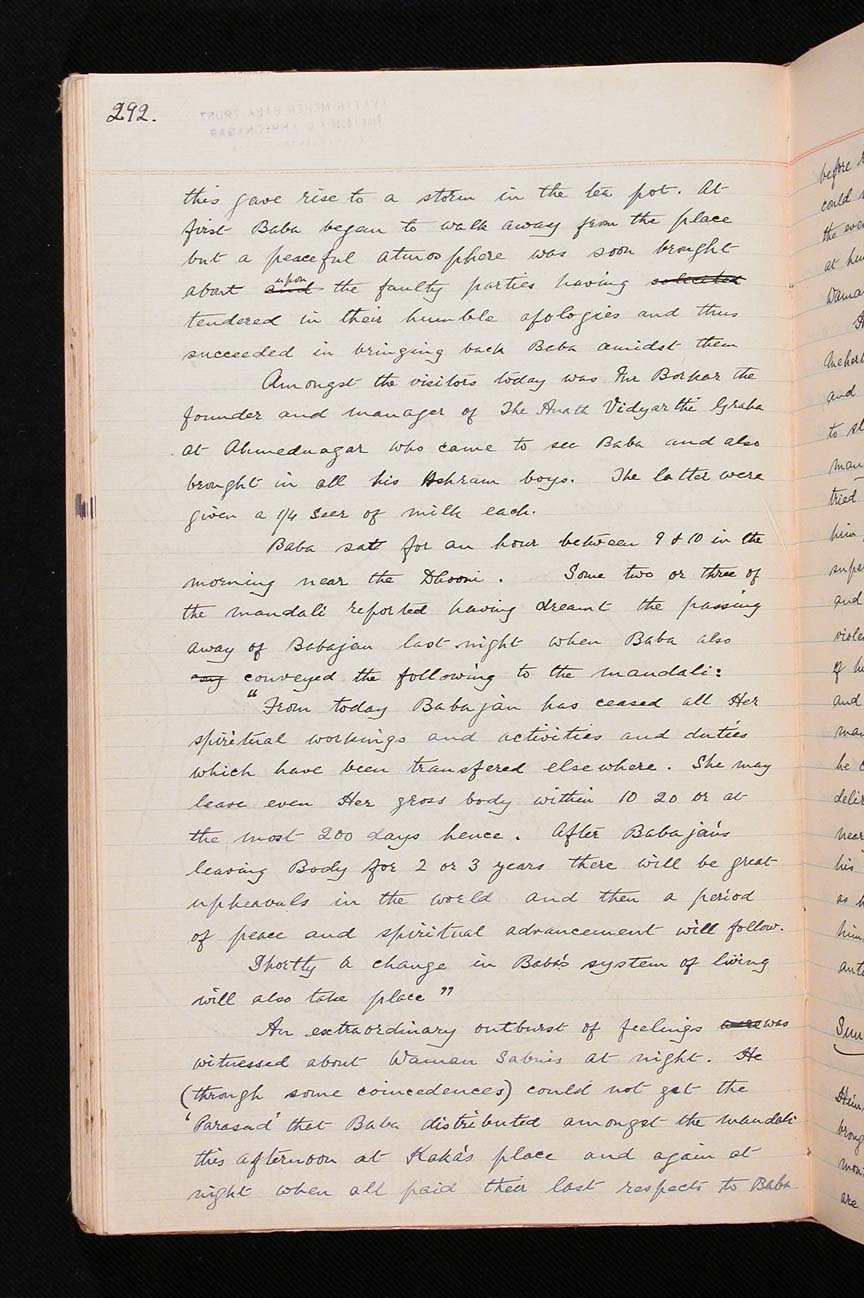 292.
this gave rise to a storm in the tea pot. At
first Baba began to walk away from the place
but a peaceful atmosphere was soon brought
about and upon the faulty parties having solicited
tendered in their humble apologies and thus
succeeded in bringing back Baba amidst them
Amongst the visitors today was Mr Borkar the
founder and manager of The Anath Vidyarthi Graha
at Ahmednagar who came to see Baba and also
brought in all his Ashram boys. The latter were
given a 1/4 Seer of milk each.
Baba satt for an hour between 9 & 10 in the
morning near the Dhooni. Some two or three of
the mandali reported having dreamt the passing
away of Babajan last night when Baba also
say conveyed the following to the mandali:
"From today Babajan has ceased all Her
spiritual workings and activities and duties
which have been transfered elsewhere. She may
leave even Her gross body within 10 20 or at
the most 200 days hence. After Babajan's
leaving Body for 2 or 3 years there will be great
upheavals in the world and then a period
of peace and spiritual advancement will follow.
Shortly a change in Baba's system of living
will also take place"
An extraordinary outburst of feelings were was
witnessed about Waman Subnis at night. He
(through some coincedences) could not get the
'Parasad' that Baba distributed amongst the mandali
this afternoon at Kaka's place and again at
night when all paid their last respects to Baba
before
could
the even
at
Waman
Meher
and
to
man
tried
him
super
and
viole
of h
and
man
he
near
his
as
him
Sun
broug
are